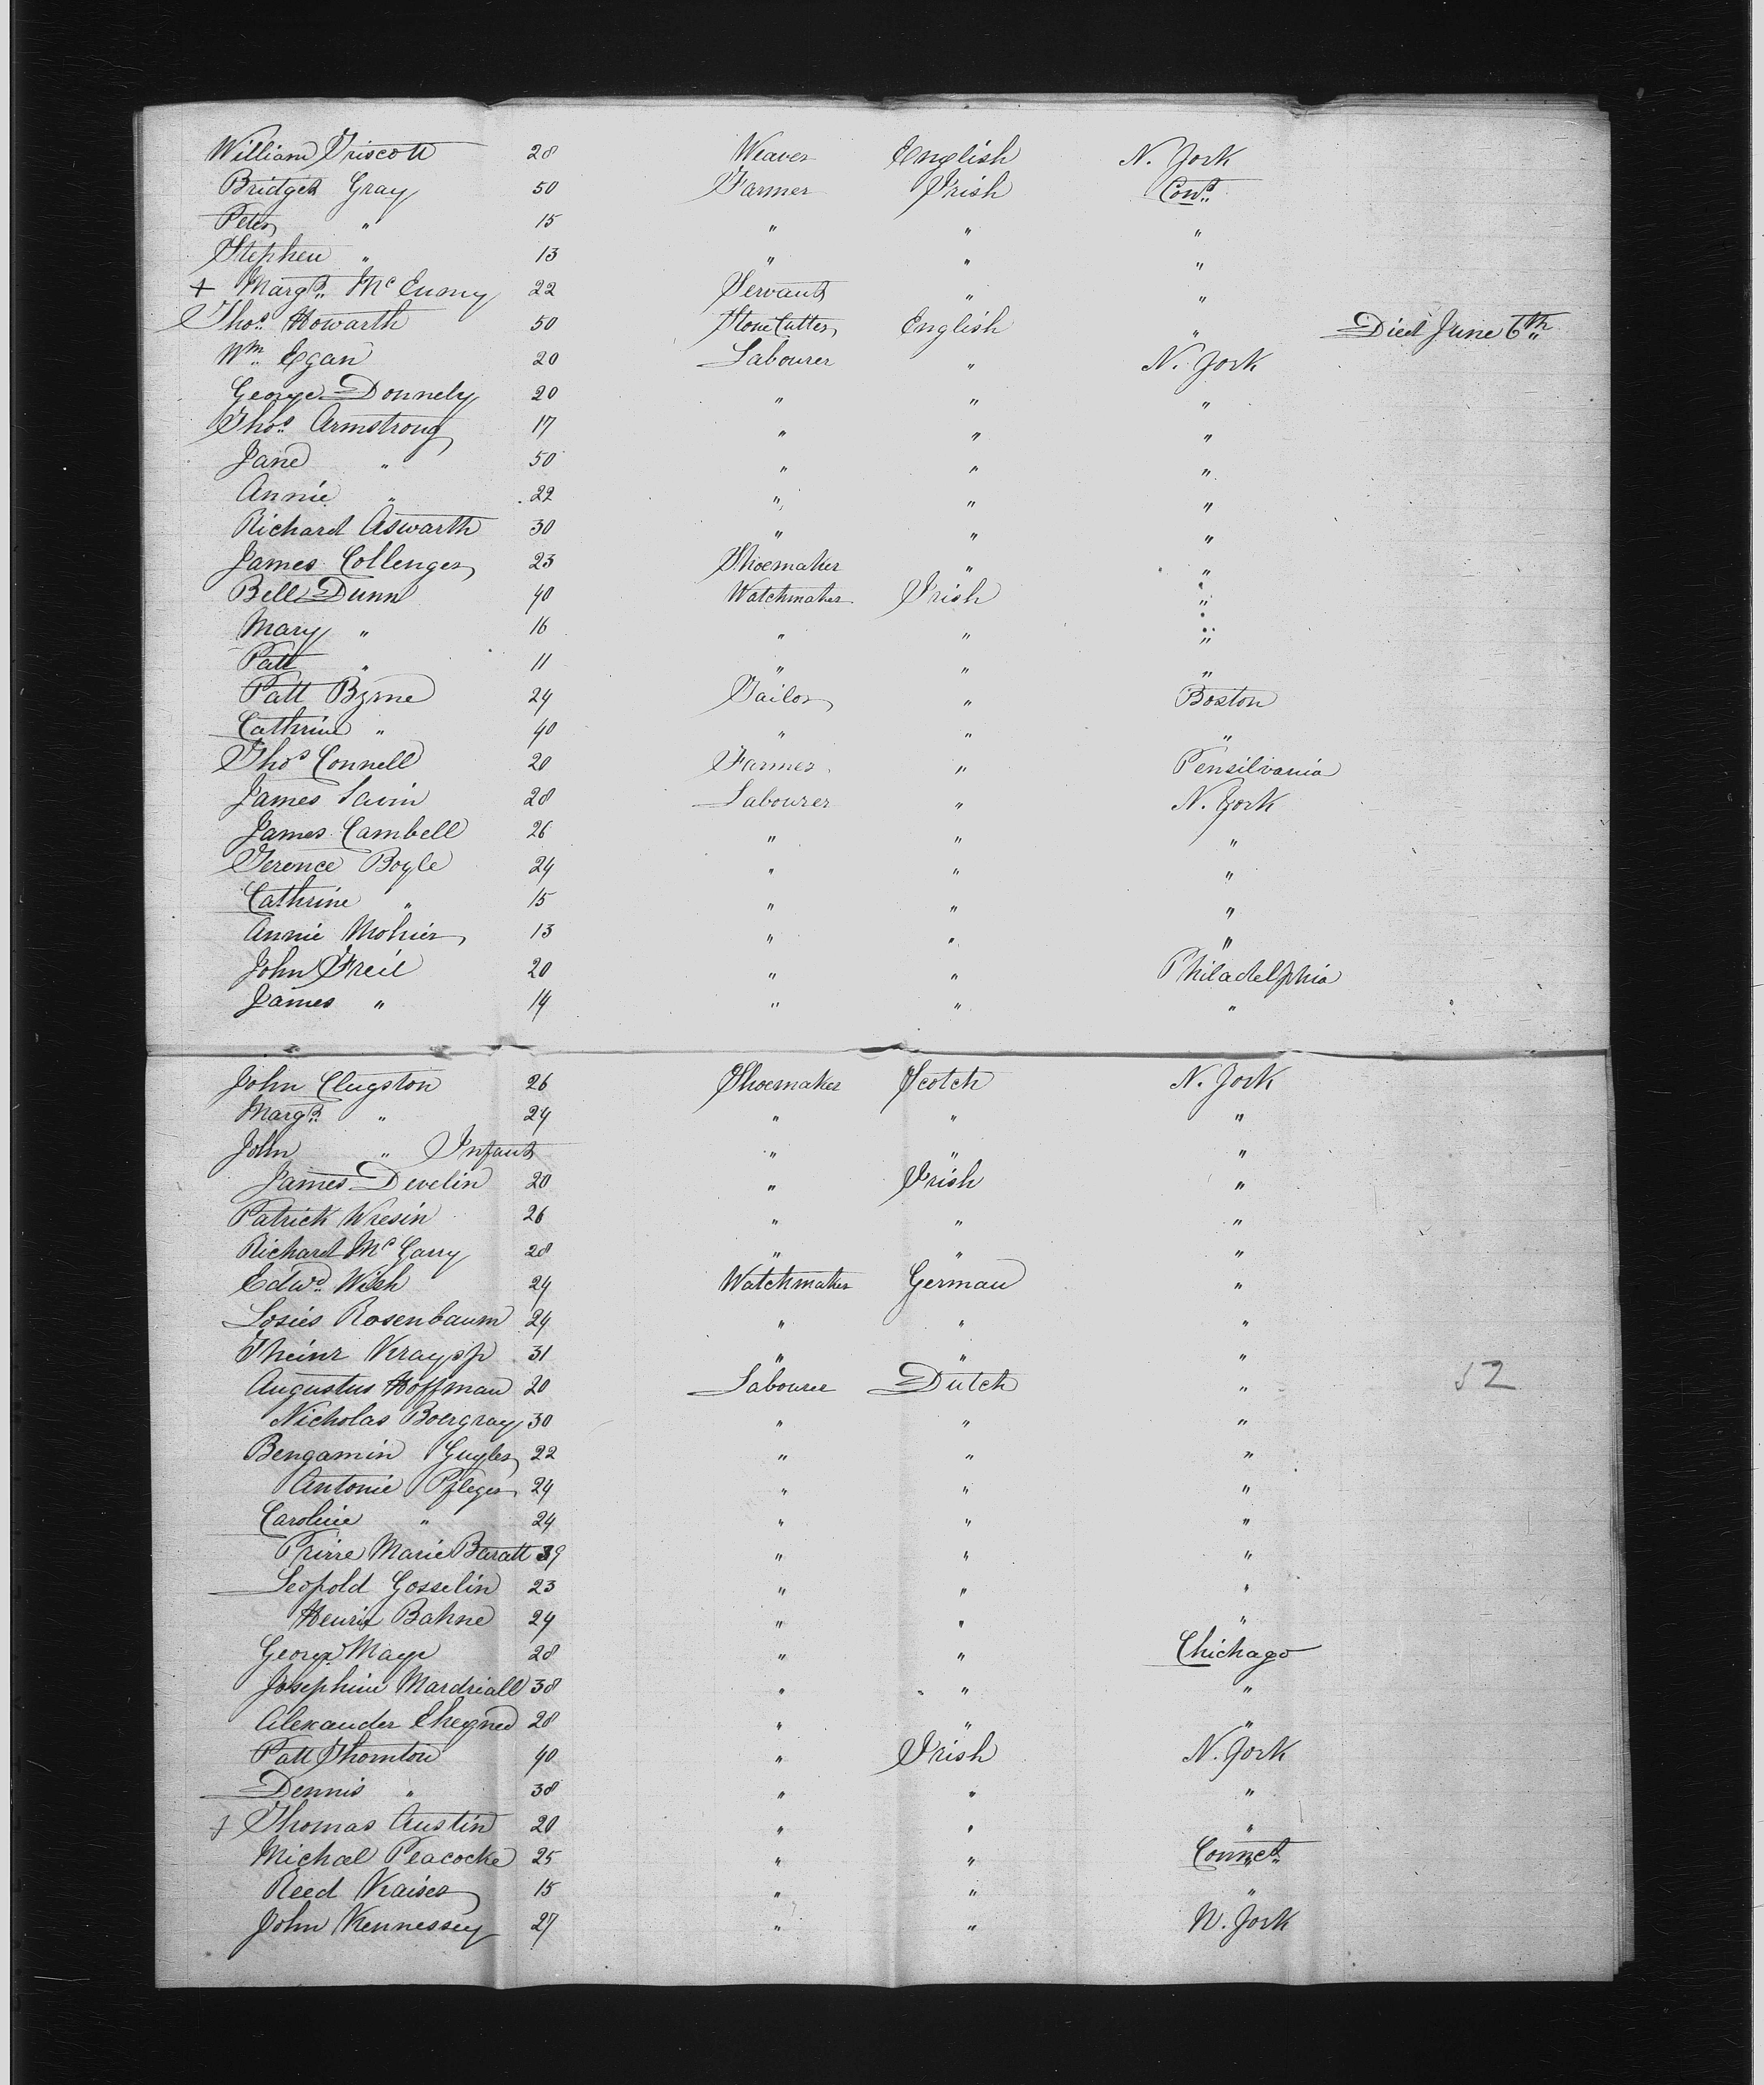 William Driscott 28 Weaver English N. York
Bridget Gray 50 Farmer Irish Cont
Peter " 15 " " "
Stephen " 13 " " "
+ Margt. McEnany 22 Servant " "
Thos. Howarth 50 Stone Cutter English " Died June 6th
Wm. Egan 20 Labourer " N. York
George Donnely 20 " " "
Thos. Armstrong 17 " " "
Jane " 50 " " "
Annie " 22 " " "
Richard Aswarth 30 " " "
James Collenger 23 Shoemaker " "
Bell Dunn 40 Watchmaker Irish "
Mary " 16 " " "
Patt " 11 " " "
Patt Byrne 24 Tailor " Boston
Cathrine " 40 " " "
Thos Connell 20 Farmer " Pensilvania
James Savin 28 Labourer " N. York
James Cambell 26 " " "
Terence Boyle 24 " " "
Cathrine " 15 " " "
Annie Mohier 13 " " "
John Freil 20 " " Philadelphia
James " 14 " " "
John Clugston 26 Shoemaker Scotch N. York
Margt. " 24 " " "
John " Infant " " "
James Develin 20 " Irish "
Patrick Wresin 26 " " "
Richard McGarry 28 " " "
Edwd. Wich 24 Watchmaker German "
Losies Rosenbaum 24 " " "
Theinr Kraypp 31 " " "
Augustus Hoffman 20 Labourer Dutch " 52
Nicholas Boergray 30 " " "
Bengamin Guyler 22 " " "
Antonie Pfleger 24 " " "
Caroline " 24 " " "
Prirre Marie Baratt 39 " " "
Leopold Gosselin 23 " " "
Henrie Bahne 24 " " "
George Mayr 28 " " Chichago
Josephine Mardriall 38 " " "
Alexander Cheyned 28 " " "
Patt Thornton 40 " Irish N. York
Dennis " 38 " " "
+ Thomas Austin 20 " " "
Michael Peacocke 25 " " Connect.
Reed Kaiser 15 " " "
John Kennessey 27 " " N. York